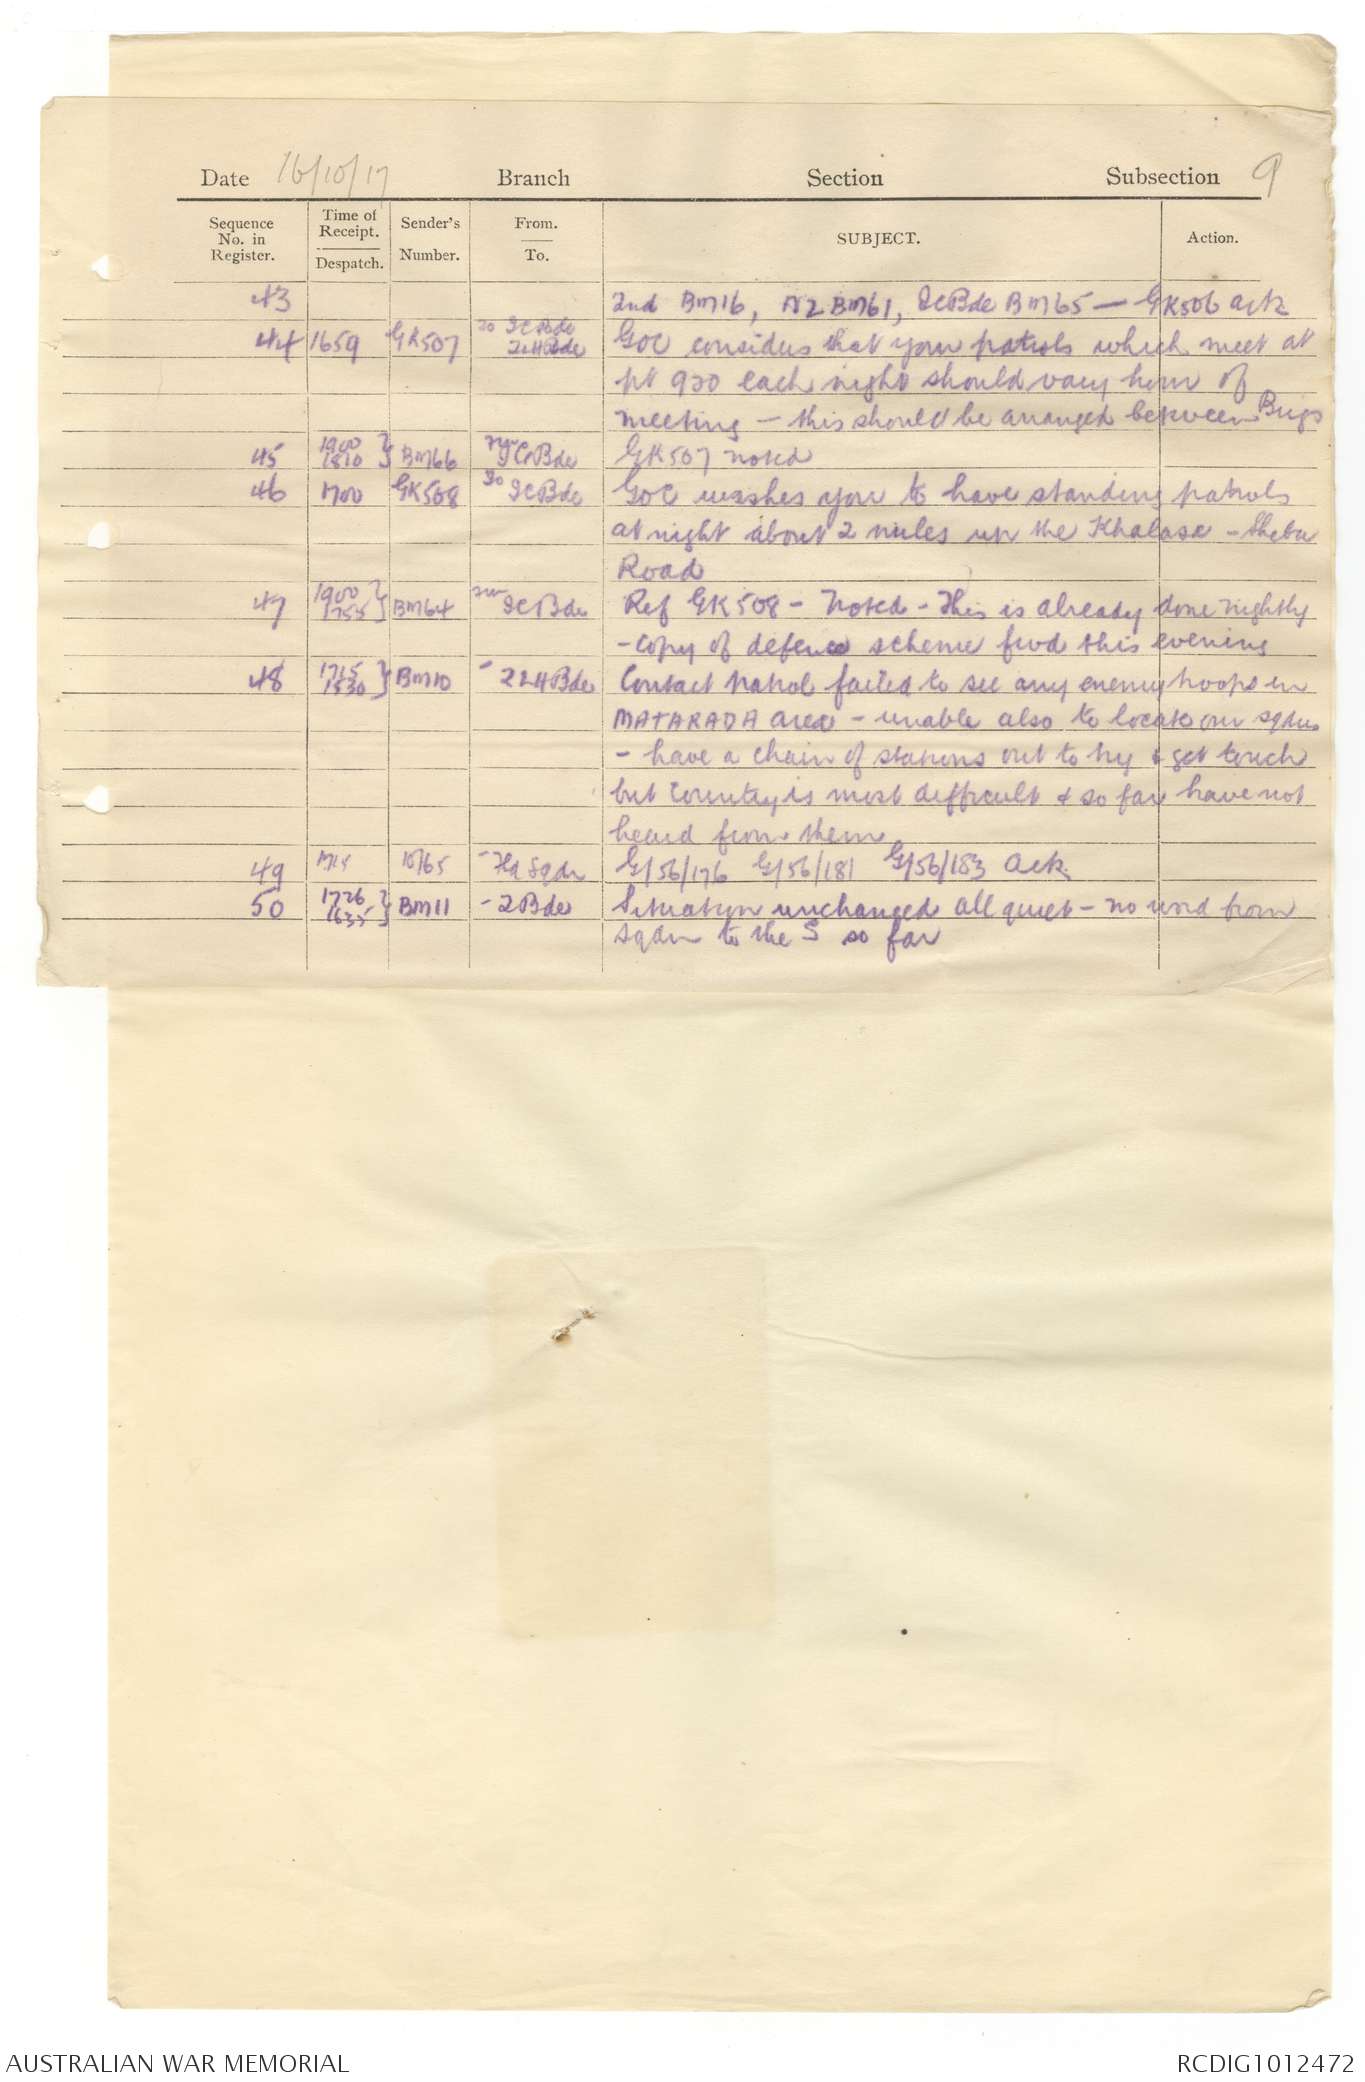 Date 16/10/17 Branch Section Subsection 9
Sequence No. in Register. Time of Receipt. Despatch. Sender's Number. From. To. SUBJECT. Action.
43 2nd BM16, NZ BM61, ICBde BM65 — GK506 ack
44 1659 GK507 To ICBde 2LHBde GOC considers that your patrols which meet at
pt 920 each night should vary hour of
meeting — this should be arranged between Brigs
45 1900 1810 } BM66 ICBde GK507 noted
46 1700 GK508 To ICBde GOC wishes you to have standing patrols
at night about 2 miles up the Khalasa - Sheba
Road
47 1900 1755 } BM64 ICBde Ref GK508 - Noted - This is already done nightly
- copy of defence scheme fwd this evening
48 1715 1530 } BM10 " 2LHBde Contact patrol failed to see any enemy troops in
MATARADA area - unable also to locate our sqdns
- have a chain of stations out to try & get touch
but country is most difficult & so far have not
heard from them
49 1715 10/65 - Fld Sqdn G/56/176 G/56/181 G/56/183 ack.
50 1726 1635 } BM11 - 2Bde Situation unchanged all quiet - no word from
sqdn to the S so far
AUSTRALIAN WAR MEMORIAL RCDIG1012472